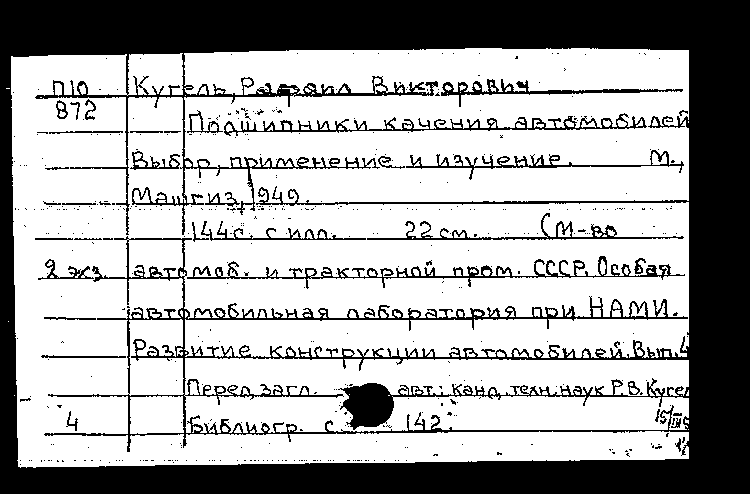 П10 Кугель, Рафаил Викторович
872
Подшипники качения автомобилей
Выбор, применение и изучение. М.,
Машгиз, 1949.
144 с. с илл. 22 см. (М-во
2 экз. автомоб. и тракторной пром. СССР. Особая
автомобильная лаборатория при НАМИ.
Развитие конструкции автомобилей. Вып. 4
Перед загл. авт.: канд. техн. наук Р.В. Кугел
4 Библиогр. с 142.